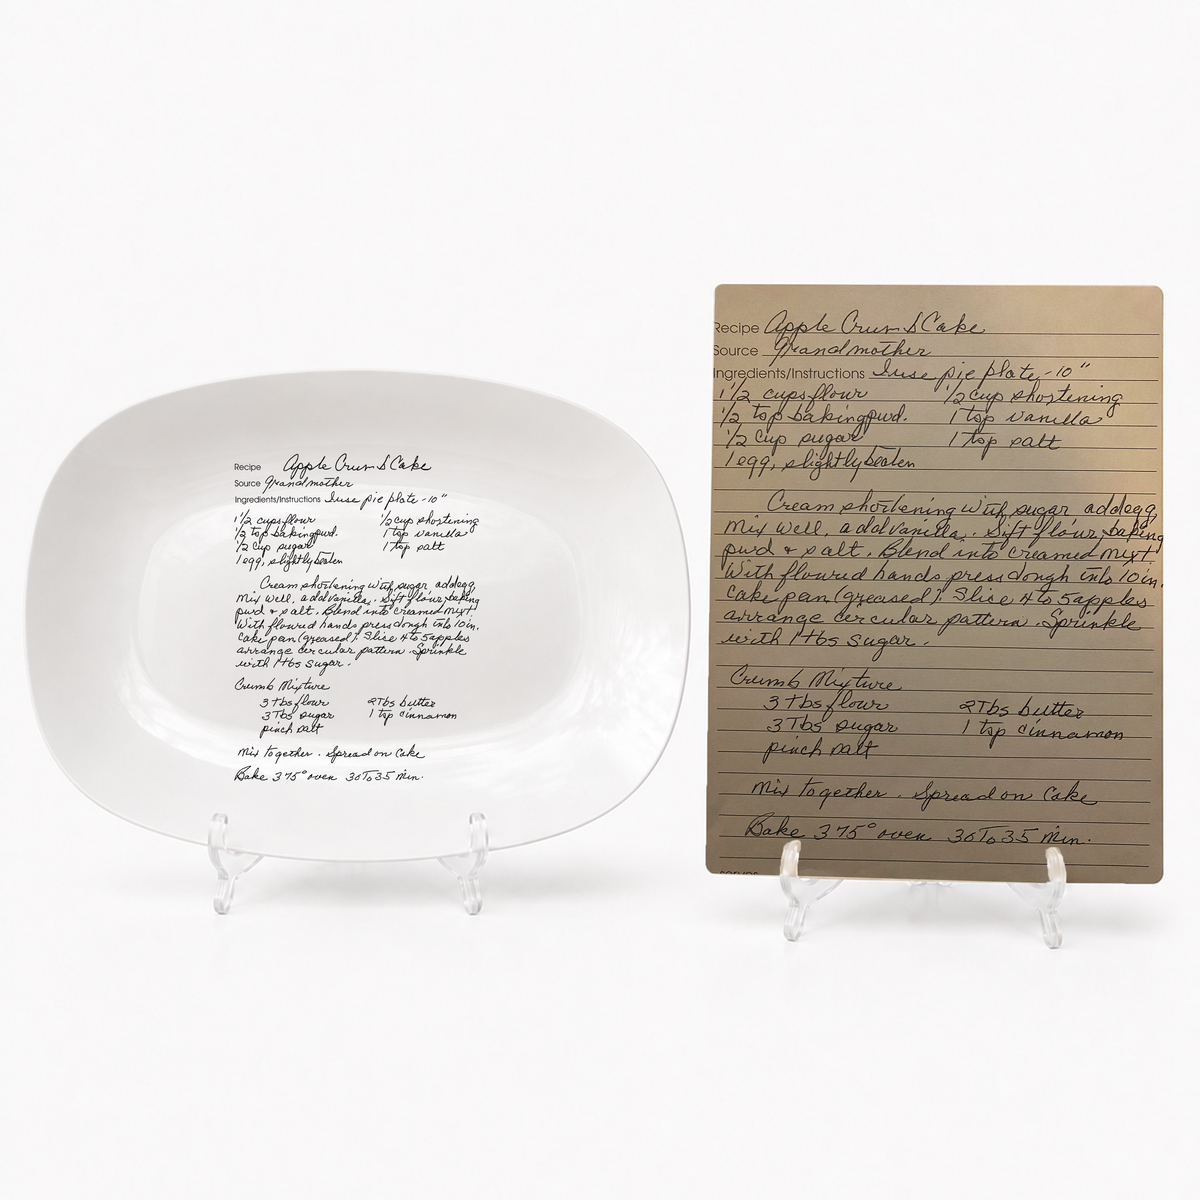 Recipe Apple Crumb Cake
Source Grandmother
Ingredients/Instructions I use pie plate - 10"
1 1/2 cups flour 1/2 cup shortening
1/2 tsp baking pwd. 1 tsp vanilla
1/2 cup sugar 1 tsp salt
1 egg, slightly beaten
Cream shortening with sugar add egg
Mix well, add vanilla. Sift flour, baking
pwd + salt. Blend into creamed mixt.
With floured hands press dough into 10 in.
cake pan (greased). Slice 4 to 5 apples
arrange circular pattern. Sprinkle
with 1 tbs sugar.
Crumb Mixture
3 tbs flour 2 Tbs butter
3 Tbs sugar 1 tsp cinnamon
pinch salt
Mix together. Spread on Cake
Bake 375° oven 30 To 35 Min.
Recipe Apple Crumb Cake
Source Grandmother
Ingredients/Instructions I use pie plate - 10"
1 1/2 cups flour 1/2 cup shortening
1/2 tsp baking pwd. 1 tsp vanilla
1/2 cup sugar 1 tsp salt
1 egg, slightly beaten
Cream shortening with sugar add egg
Mix well, add vanilla. Sift flour, baking
pwd + salt. Blend into creamed mixt.
With floured hands press dough into 10 in.
cake pan (greased). Slice 4 to 5 apples
arrange circular pattern. Sprinkle
with 1 tbs sugar.
Crumb Mixture
3 tbs flour 2 Tbs butter
3 Tbs sugar 1 tsp cinnamon
pinch salt
Mix together. Spread on Cake
Bake 375° oven 30 To 35 Min.